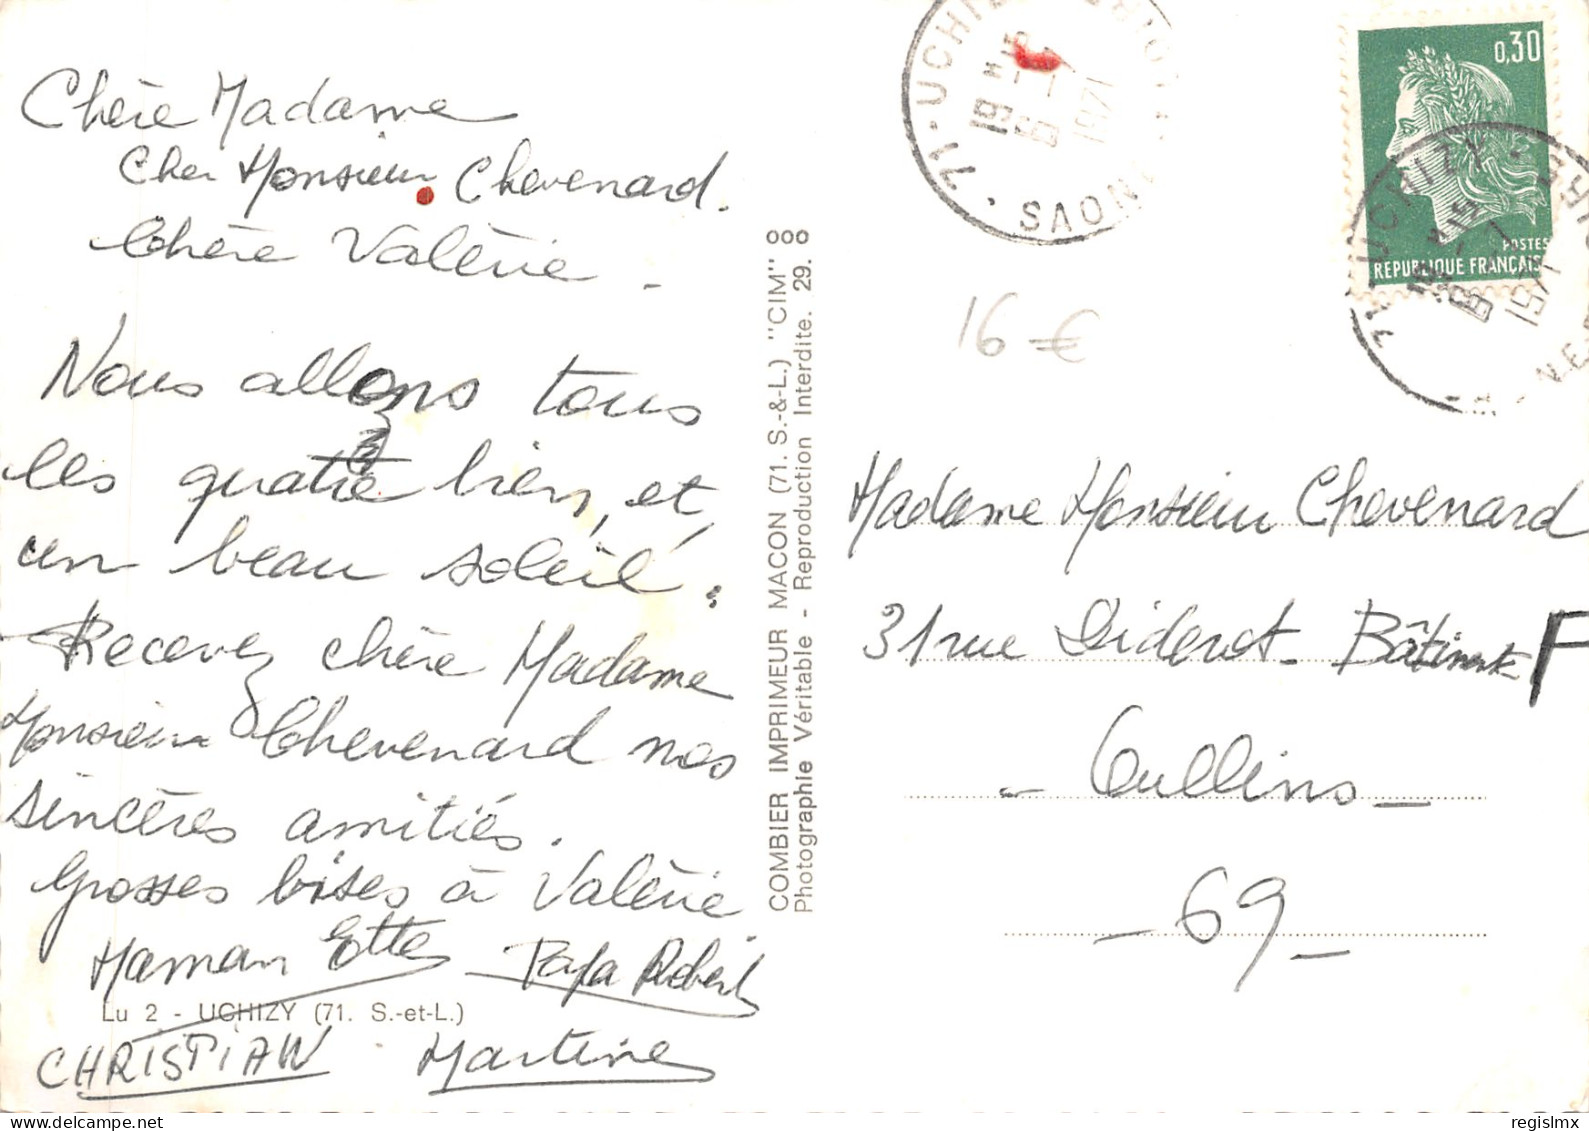 Chère Madame
Cher Monsieur Chevenard.
Chère Valérie -
Nous allons tous
les quatre bien, et
un beau soleil.
Recevez chère Madame
Monsieur Chevenard nos
sincères amitiés.
Grosses bises à Valérie
Maman Ette Papa Robert
Lu 2 - UCHIZY (71. S.-et-L.)
CHRISTIAN Martine
COMBIER IMPRIMEUR MACON (71. S.-&-L.) "CIM"
Photographie Véritable - Reproduction Interdite. 29.
71-UCHIZY
19
8-1
1971
SAONE
0,30
POSTES
REPUBLIQUE FRANÇAISE
71 UCHIZY
8-1
1971
16 €
Madame Monsieur Chevenard
31 rue Diderot - Bâtiment F
- Oullins -
- 69 -
regislmx